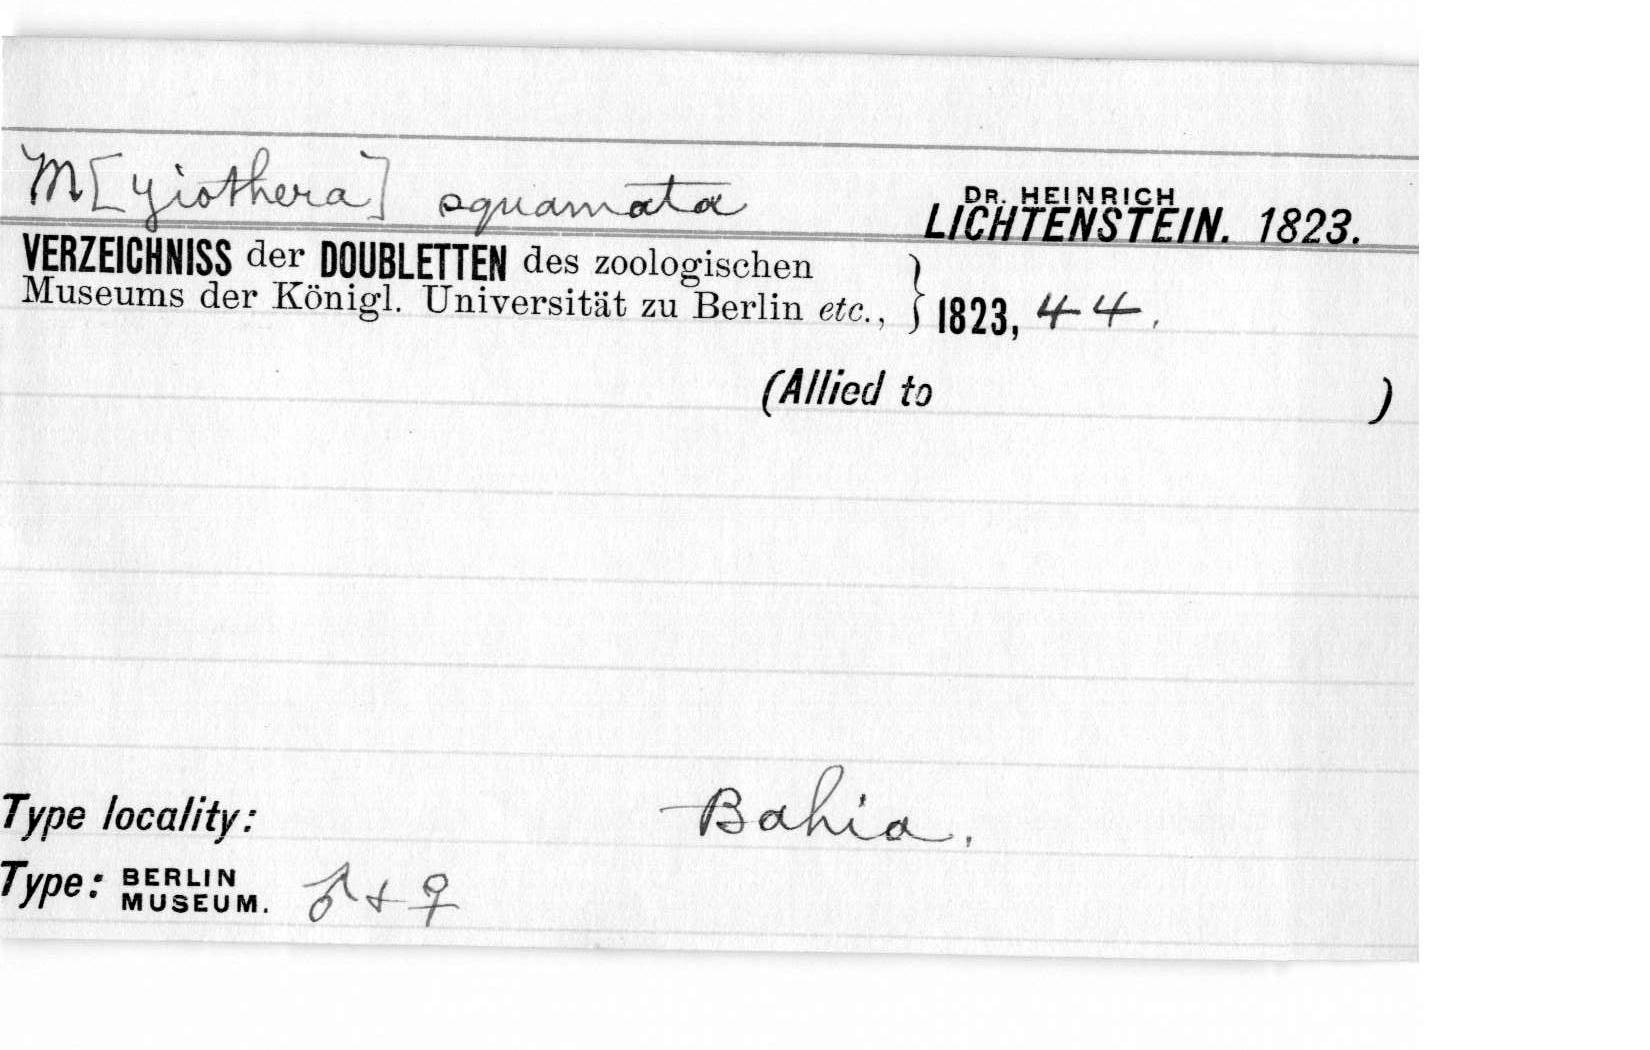 M[yiothera] squamata
DR. HEINRICH
LICHTENSTEIN. 1823.
VERZEICHNISS der DOUBLETTEN des zoologischen
Museums der Königl. Universität zu Berlin etc.,
} 1823, 44.
(Allied to )
Type locality: Bahia.
Type: BERLIN MUSEUM. ♂ + ♀